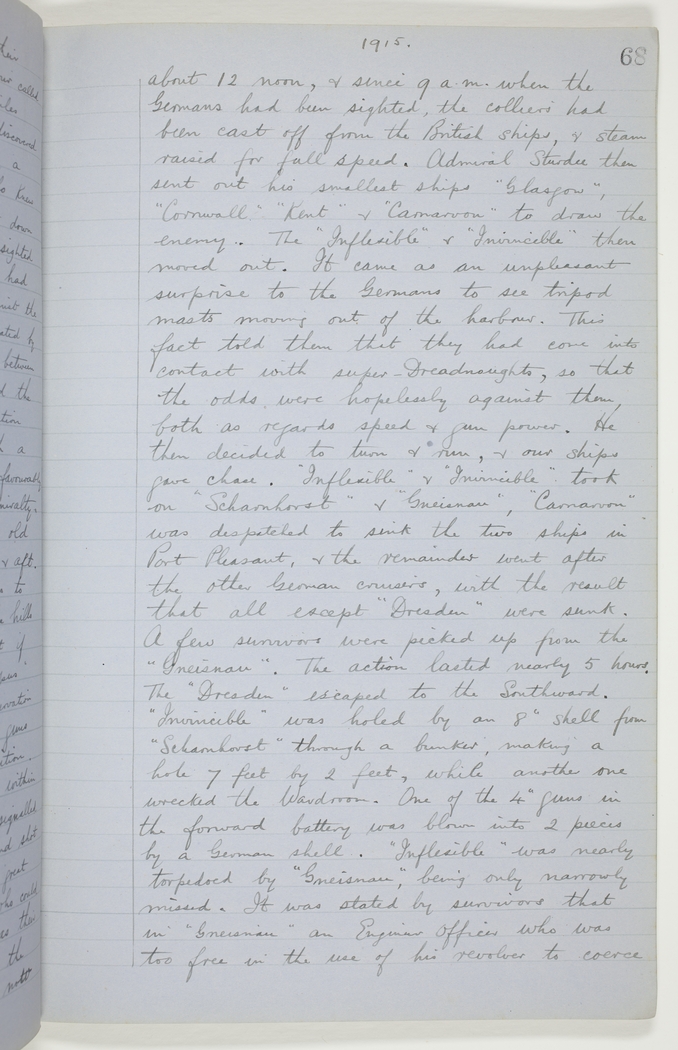 1915.
68
about 12 noon, & since 9 a.m. when the
Germans had been sighted, the colliers had
been cast off from the British ships, & steam
raised for full speed. Admiral Sturdee then
sent out his smallest ships "Glasgow",
"Cornwall" "Kent" & "Carnarvon" to draw the
enemy. The "Inflexible" & "Invincible" then
moved out. It came as an unpleasant
surprise to the Germans to see tripod
masts moving out of the harbour. This
fact told them that they had come into
contact with super-Dreadnoughts, so that
the odds were hopelessly against them,
both as regards speed & gun power. He
then decided to turn & run, & our ships
gave chase. "Inflexible" & "Invincible" took
on "Scharnhorst" & "Gneisnau", "Carnarvon"
was despatched to sink the two ships in
Port Pleasant, & the remainder went after
the other German cruisers, with the result
that all except "Dresden" were sunk.
A few survivors were picked up from the
"Gneisnau". The action lasted nearly 5 hours.
The "Dresden" escaped to the Southward.
"Invincible" was holed by an 8" shell from
"Scharnhorst" through a bunker, making a
hole 7 feet by 2 feet, while another one
wrecked the Wardroom. One of the 4" guns in
the forward battery was blown into 2 pieces
by a German shell. "Inflexible" was nearly
torpedoed by "Gneisnau", being only narrowly
missed. It was stated by survivors that
in "Gneisnau" an Engineer Officer who was
too free in the use of his revolver to coerce